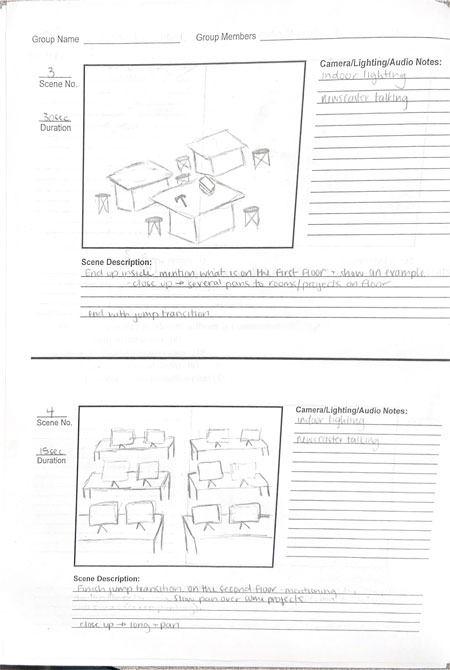 Group Name
Group Members
3
Scene No.
30sec
Duration
Camera/Lighting/Audio Notes:
indoor lighting
newscaster talking
Scene Description:
End up inside mention what is on the first floor + show an example
- close up → several pans to rooms/projects on floor
end with jump transition
4
Scene No.
15sec
Duration
Camera/Lighting/Audio Notes:
indoor lighting
newscaster talking
Scene Description:
Finish jump transition on the second floor - mentioning
slow pan over projects
close up → long + pan